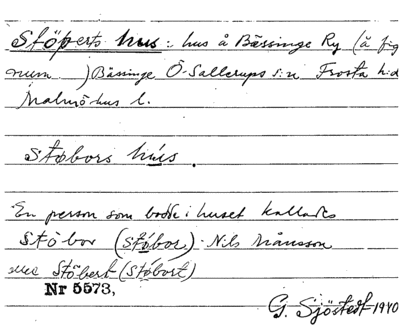 Stöberts hus: hus å Bässinge Ry (å fig
num ) Bässinge Ö-Sallerups s:n Frosta h:d
Malmöhus l.
Stobors hús.
En person som bodde i huset kallades
Stöbor (Stöbor) Nils Månsson
eller Stöbert (Stöbort)
Nr 5573,
G. Sjöstedt 1940